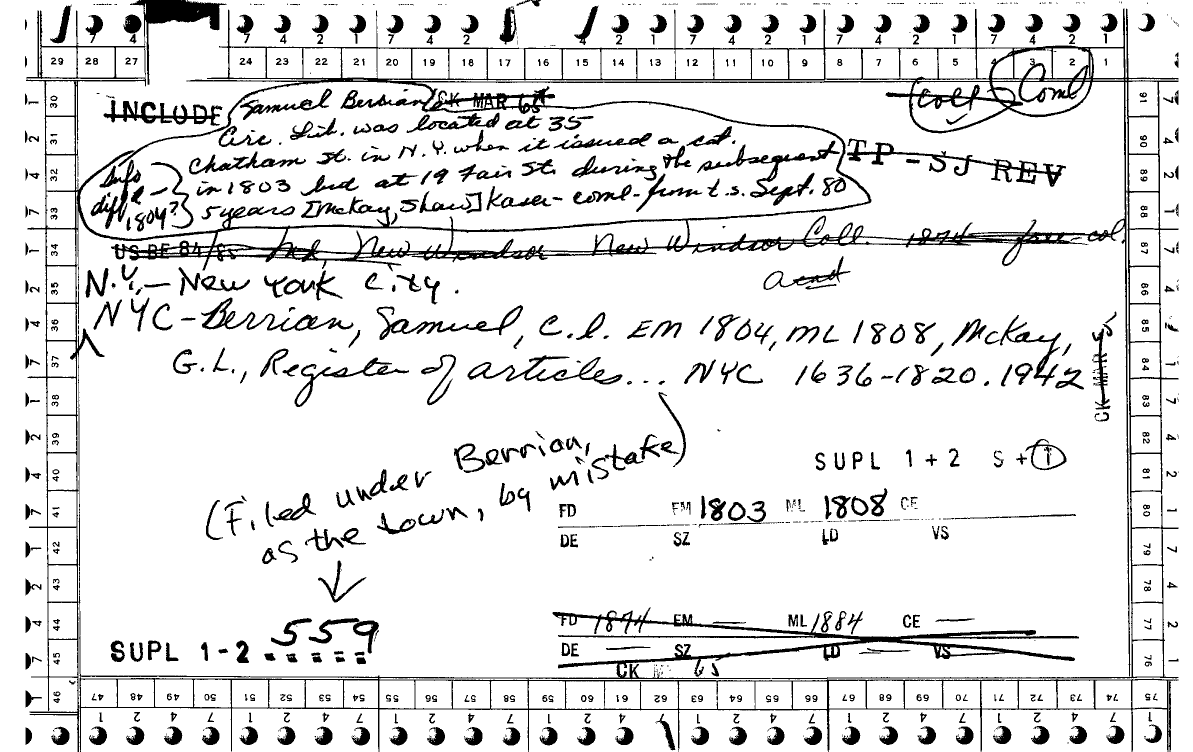 7 4 4 2 1 7 4 2 1 7 2 1 7 4 2 1 7 4 2 1
29 28 27 24 23 22 21 20 19 18 17 16 15 14 13 12 11 10 9 8 7 6 5 4 3 2 1
INCLUDE Samuel Berrian CK MAR 65
coll Coml
Circ. Lib. was located at 35
Chatham St. in N.Y. when it issued a cat.
in 1803 but at 19 Fair St. during the subsequent
5 years [McKay, Shaw] Kaser - coml - from t.s. Sept. 80
Info
diff.
1804?
TP - SJ REV
US BE 84/85 Md, New Windsor New Windsor Coll. 1874 free col.
acad
N.Y. - New York City.
NYC - Berrian, Samuel, C.l. EM 1804, ML 1808, McKay,
G.L., Register of articles... NYC 1636-1820. 1942
CK MAR 5
(Filed under Berrian,
as the town, by mistake)
SUPL 1+2 S+1
FD EM 1803 ML 1808 CE
DE SZ LD VS
559
SUPL 1-2
FD 1874 EM — ML 1884 CE —
DE — SZ LD — VS
CK M 65
30 31 32 33 34 35 36 37 38 39 40 41 42 43 44 45 46
91 90 89 88 87 86 85 84 83 82 81 80 79 78 77 76 75
47 48 49 50 51 52 53 54 55 56 57 58 59 60 61 62 63 64 65 66 67 68 69 70 71 72 73 74